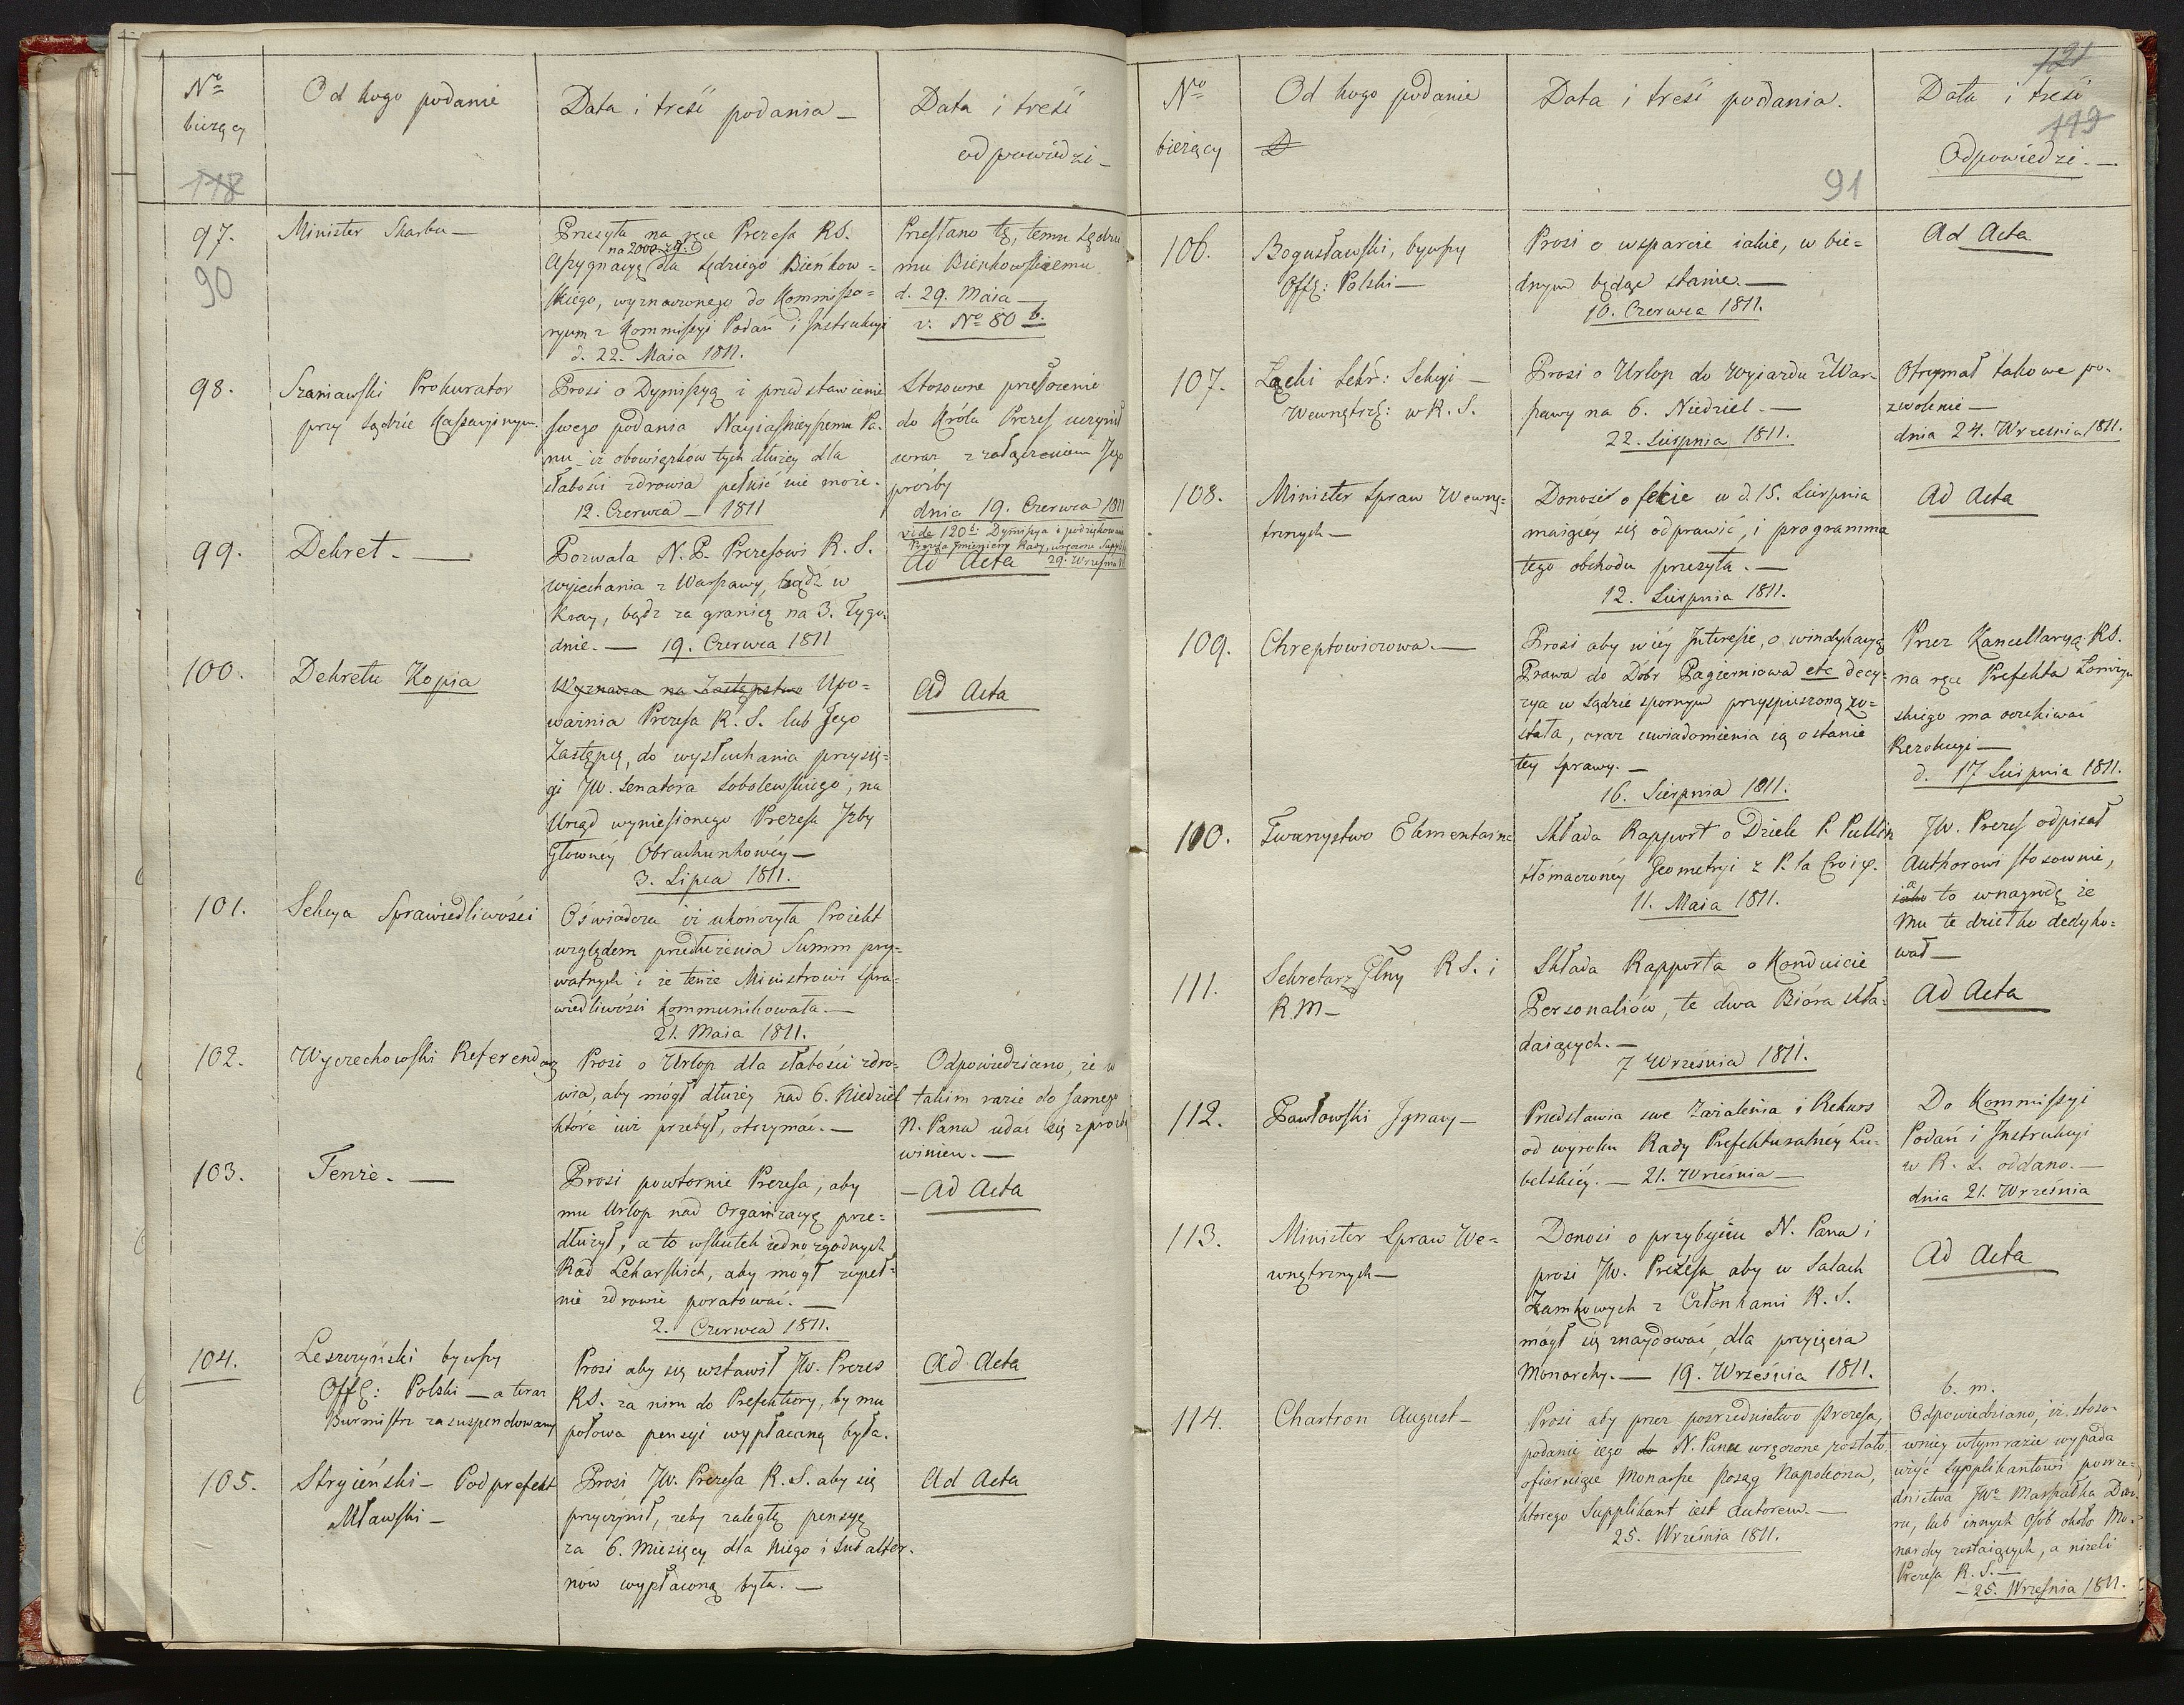 Nº
bieżący
118
Od kogo podanie
Data i treść podania —
Data i treść
odpowiedzi —
97.
90
Minister Skarbu —
Przesyła na ręce Prezesa RS.
na 2000 zł.
Assygnacyą dla Sędziego Bieńkow=
skiego, wyznaczonego do Kommisso=
ryum z Kommissyi Podań i Instrukcyi
d. 22. Maia 1811.
Przesłano tę, temu Sędzie
mu Bieńkowskiemu
d. 29. Maia —
v. Nº 80 b.
98.
Szaniawski Prokurator
przy Sądzie Kassacyinym.
Prosi o Dymissyą i przedstawienie
swego podania Nayiaśnieyszemu Pa-
nu iż obowiązków tych dłużey dla
słabości zdrowia pełnić nie może.
12. Czerwca — 1811
Stosowne przełożenie
do Króla Prezes uczynił
wraz z załączeniem Jego
prośby
dnia 19. Czerwca 1811
vide 120 b: Dymissya i podziękowanie
29. Wrześni
99.
Dekret. —
Pozwala N. P. Prezesowi R. S.
wyjechania z Warszawy, bądź w
Kray, bądź za granicę na 3. Tygo-
dnie. — 19. Czerwca 1811
Ad Acta
100.
Dekretu Kopia
Wyznacza na Zastępstwo Upo=
ważnia Prezesa R. S. lub Jego
Zastępcę, do wysłuchania przysię=
gi JW. Senatora Sobolewskiego, na
Urząd wyniesionego Prezesa Izby
Głowney Obrachunkowéy —
3. Lipca 1811.
Ad Acta
101.
Sekcya Sprawiedliwości
Oświadcza iż ukończyła Proiekt
względem przedłużenia Summ pry=
watnych i że tenże Ministrowi Spra=
wiedliwości kommunikowała. —
21. Maia 1811.
102.
Wyczechowski Referendarz
Prosi o Urlop dla słabości zdro=
wia, aby mógł dłużey nad 6. Niedziel
które już przebył, otrzymać. —
Odpowiedziano, że w
takim razie do samego
N. Pana udać się z prośbą
winien. —
103.
Tenże. —
Prosi powtornie Prezesa, aby
mu Urlop nad Organizacyę prze=
dłużył, a to wskutek iednozgodnych
Rad Lekarskich, aby mógł zupeł=
nie zdrowie poratować. —
2. Czerwca 1811.
— Ad Acta
104.
Leszczyński bywszy
Offc: Polski — a teraz
Burmistrz zasuspendowany
Prosi aby się wstawił JW. Prezes
RS. za nim do Prefektury, by mu
połowa pensyi wypłacaną była.
Ad Acta
105.
Stryieński — Podprefekt
Mławski —
Prosi JW. Prezesa R. S. aby się
przyczynił, żeby zaległą pensyę
za 6. Miesięcy dla Niego i Subalter-
nów wypłaconą była. —
Ad Acta
121
119
91
Nº
bieżący
Od kogo podanie
D
Data i treść podania.
Data i treść
Odpowiedzi. —
106.
Bogusławski, bywszy
Offc: Polski —
Prosi o wsparcie iakie, w bie=
dnym będąc stanie. —
10. Czerwca 1811.
Ad Acta
107.
Łącki Sekr: Sekcyi —
Wewnętrz: w R. S.
Prosi o Urlop do Wyiazdu z War-
szawy na 6. Niedziel. —
22. Sierpnia 1811.
Otrzymał takowe po-
zwolenie —
dnia 24. Września 1811.
108.
Minister Spraw Wewnę=
trznych —
Donosi o fecie w d. 15. Sierpnia
maiącéy się odprawić, i programma
tego obchodu przesyła. —
12. Sierpnia 1811.
Ad Acta
109.
Chreptowiczowa. —
Prosi aby w iéy Interesie, o windykacyą
Prawa do Dóbr Pagierniowa etc decy-
zya w Sądzie spornym przyspieszoną zo=
stała, oraz uwiadomienia ią o stanie
tey sprawy. —
16. Sierpnia 1811.
Przez Kancellaryą RS.
na ręce Prefekta Łomżyń
skiego ma oczekiwać
Rezolucyi —
d. 17 Sierpnia 1811.
110.
Towarzystwo Elementarne
Składa Rapport o Dziele P.
tłómaczonéy Geometryi z P. la Croix.
11. Maia 1811.
JW. Prezes odpisał
Authorowi stosownie,
a
iako to w nagrodę że
Mu te dziełko dedyko=
wał —
111.
Sekretarz Głny RS. i
R.M —
Składa Rapporta o Konduicie
Personaliów, te dwa Bióra skła-
daiących. —
7 Września 1811.
Ad Acta
112.
Pawłowski Ignacy —
Przedstawia swe Zażalenia i Rekurs
od wyroku Rady Prefekturalnéy Lu-
belskiéy. — 21. Września —
Do Kommissyi
Podań i Instrukcyi
w R. S. oddano. —
dnia 21. Września
113.
Minister Spraw We=
wnętrznych —
Donosi o przybyciu N. Pana i
prosi JW. Prezesa aby w Salach
Zamkowych z Członkami R. S.
mógł się znaydować, dla przyięcia
Monarchy. — 19. Września 1811.
Ad Acta
114.
Chartron August —
Prosi aby przez posrzednictwo Prezesa,
podanie iego do N. Pana wręczone zostało,
ofiaruiące Monarsze Posąg Napoleona,
ktorego Supplikant iest Autorem. —
25. Września 1811.
b. m.
Odpowiedziano, iż stoso-
wniey w tym razie wypada
użyć Supplikantowi posrze-
dnictwa JWº Marszałka Dwo-
ru, lub innych Osób około Mo-
narchy zostaiących, a niżeli
Prezesa R. S. —
— 25. Września 1811.